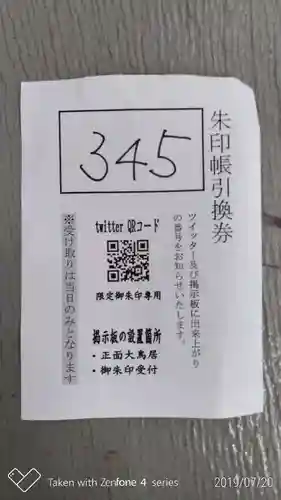 朱印帳引換券
ツイッター及び掲示板に出来上がり
の番号をお知らせいたします。
345
twitter QRコード
限定御朱印専用
掲示板の設置箇所
・正面大鳥居
・御朱印受付
※受け取りは当日のみとなります
Taken with Zenfone 4 series
2019/07/20